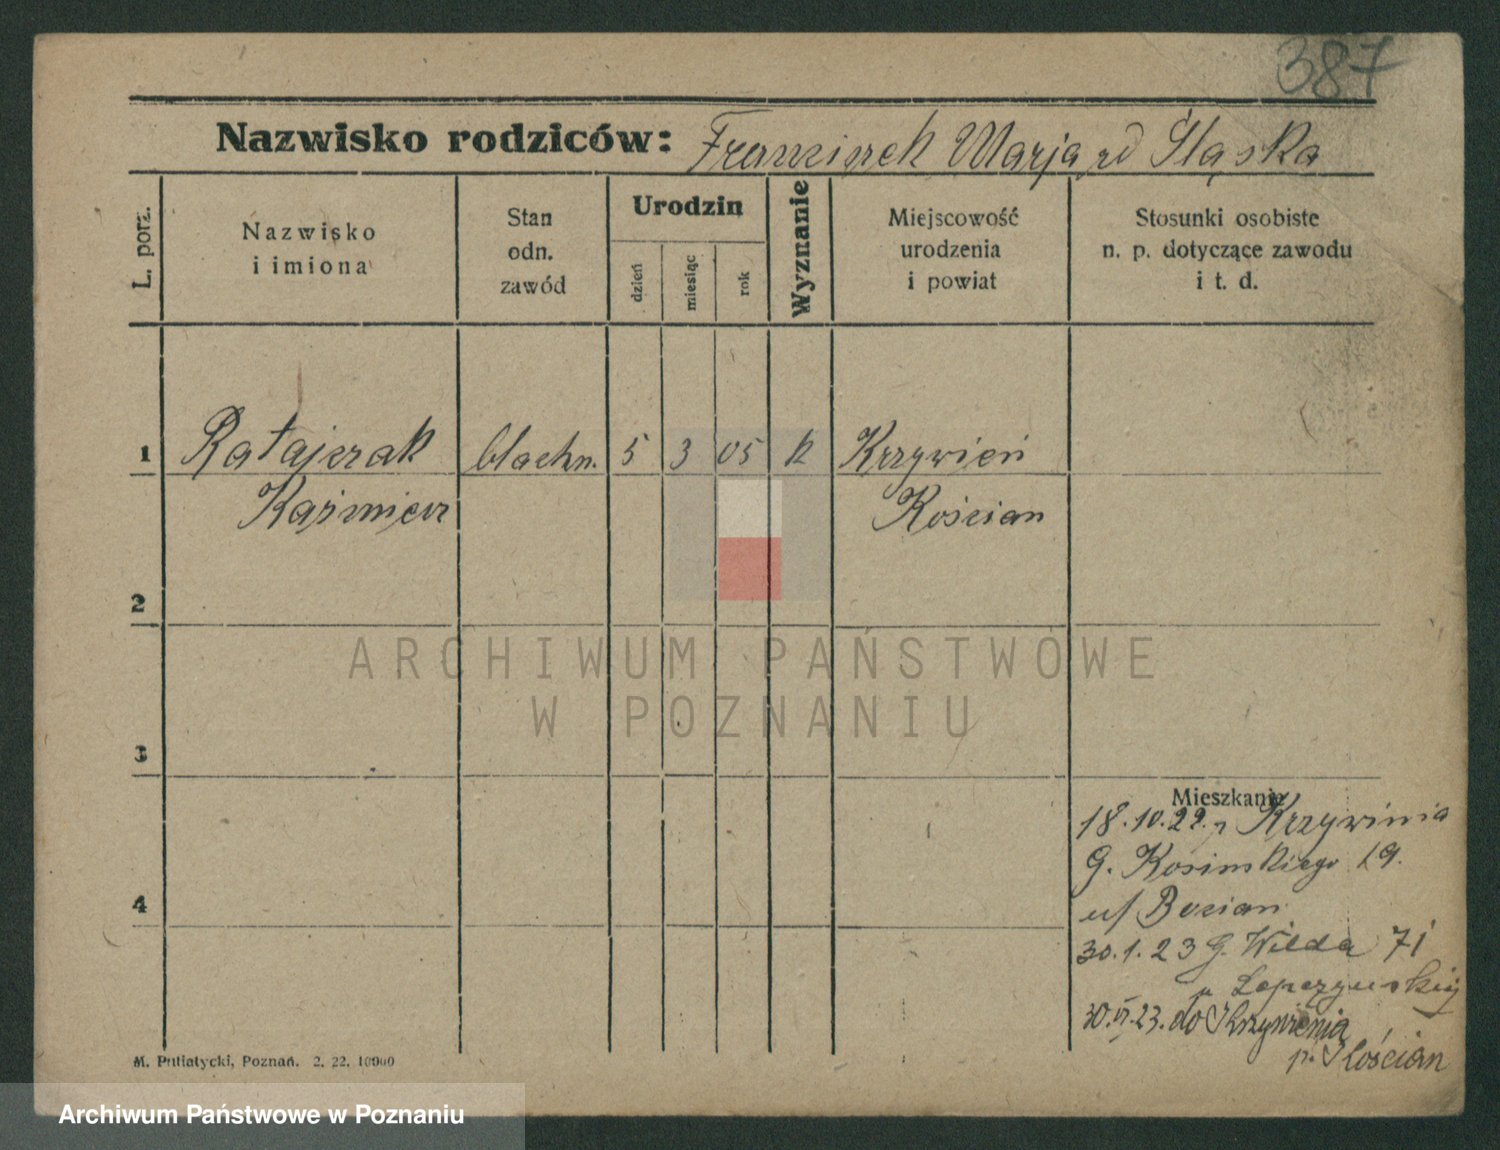 387
Nazwisko rodziców: Franciszek Marja zd Śląska
L. porz.
Nazwisko i imiona
Stan odn. zawód
Urodzin
dzień
miesiąc
rok
Wyznanie
Miejscowość urodzenia i powiat
Stosunki osobiste n. p. dotyczące zawodu i t. d.
1 Ratajczak blachn. 5 3 05 k Krzywień
Kaźmierz Kościan
2
3
4
Mieszkanie
18.10.22. z Krzywinia
G. Kosinskiego 19.
u/ Bocian
30.1.23 G. Wilda 71
30.VI.23. do Krzywienia
p. Kościan
M. Putiatycki, Poznań. 2. 22. 10000
ARCHIWUM PAŃSTWOWE
W POZNANIU
Archiwum Państwowe w Poznaniu